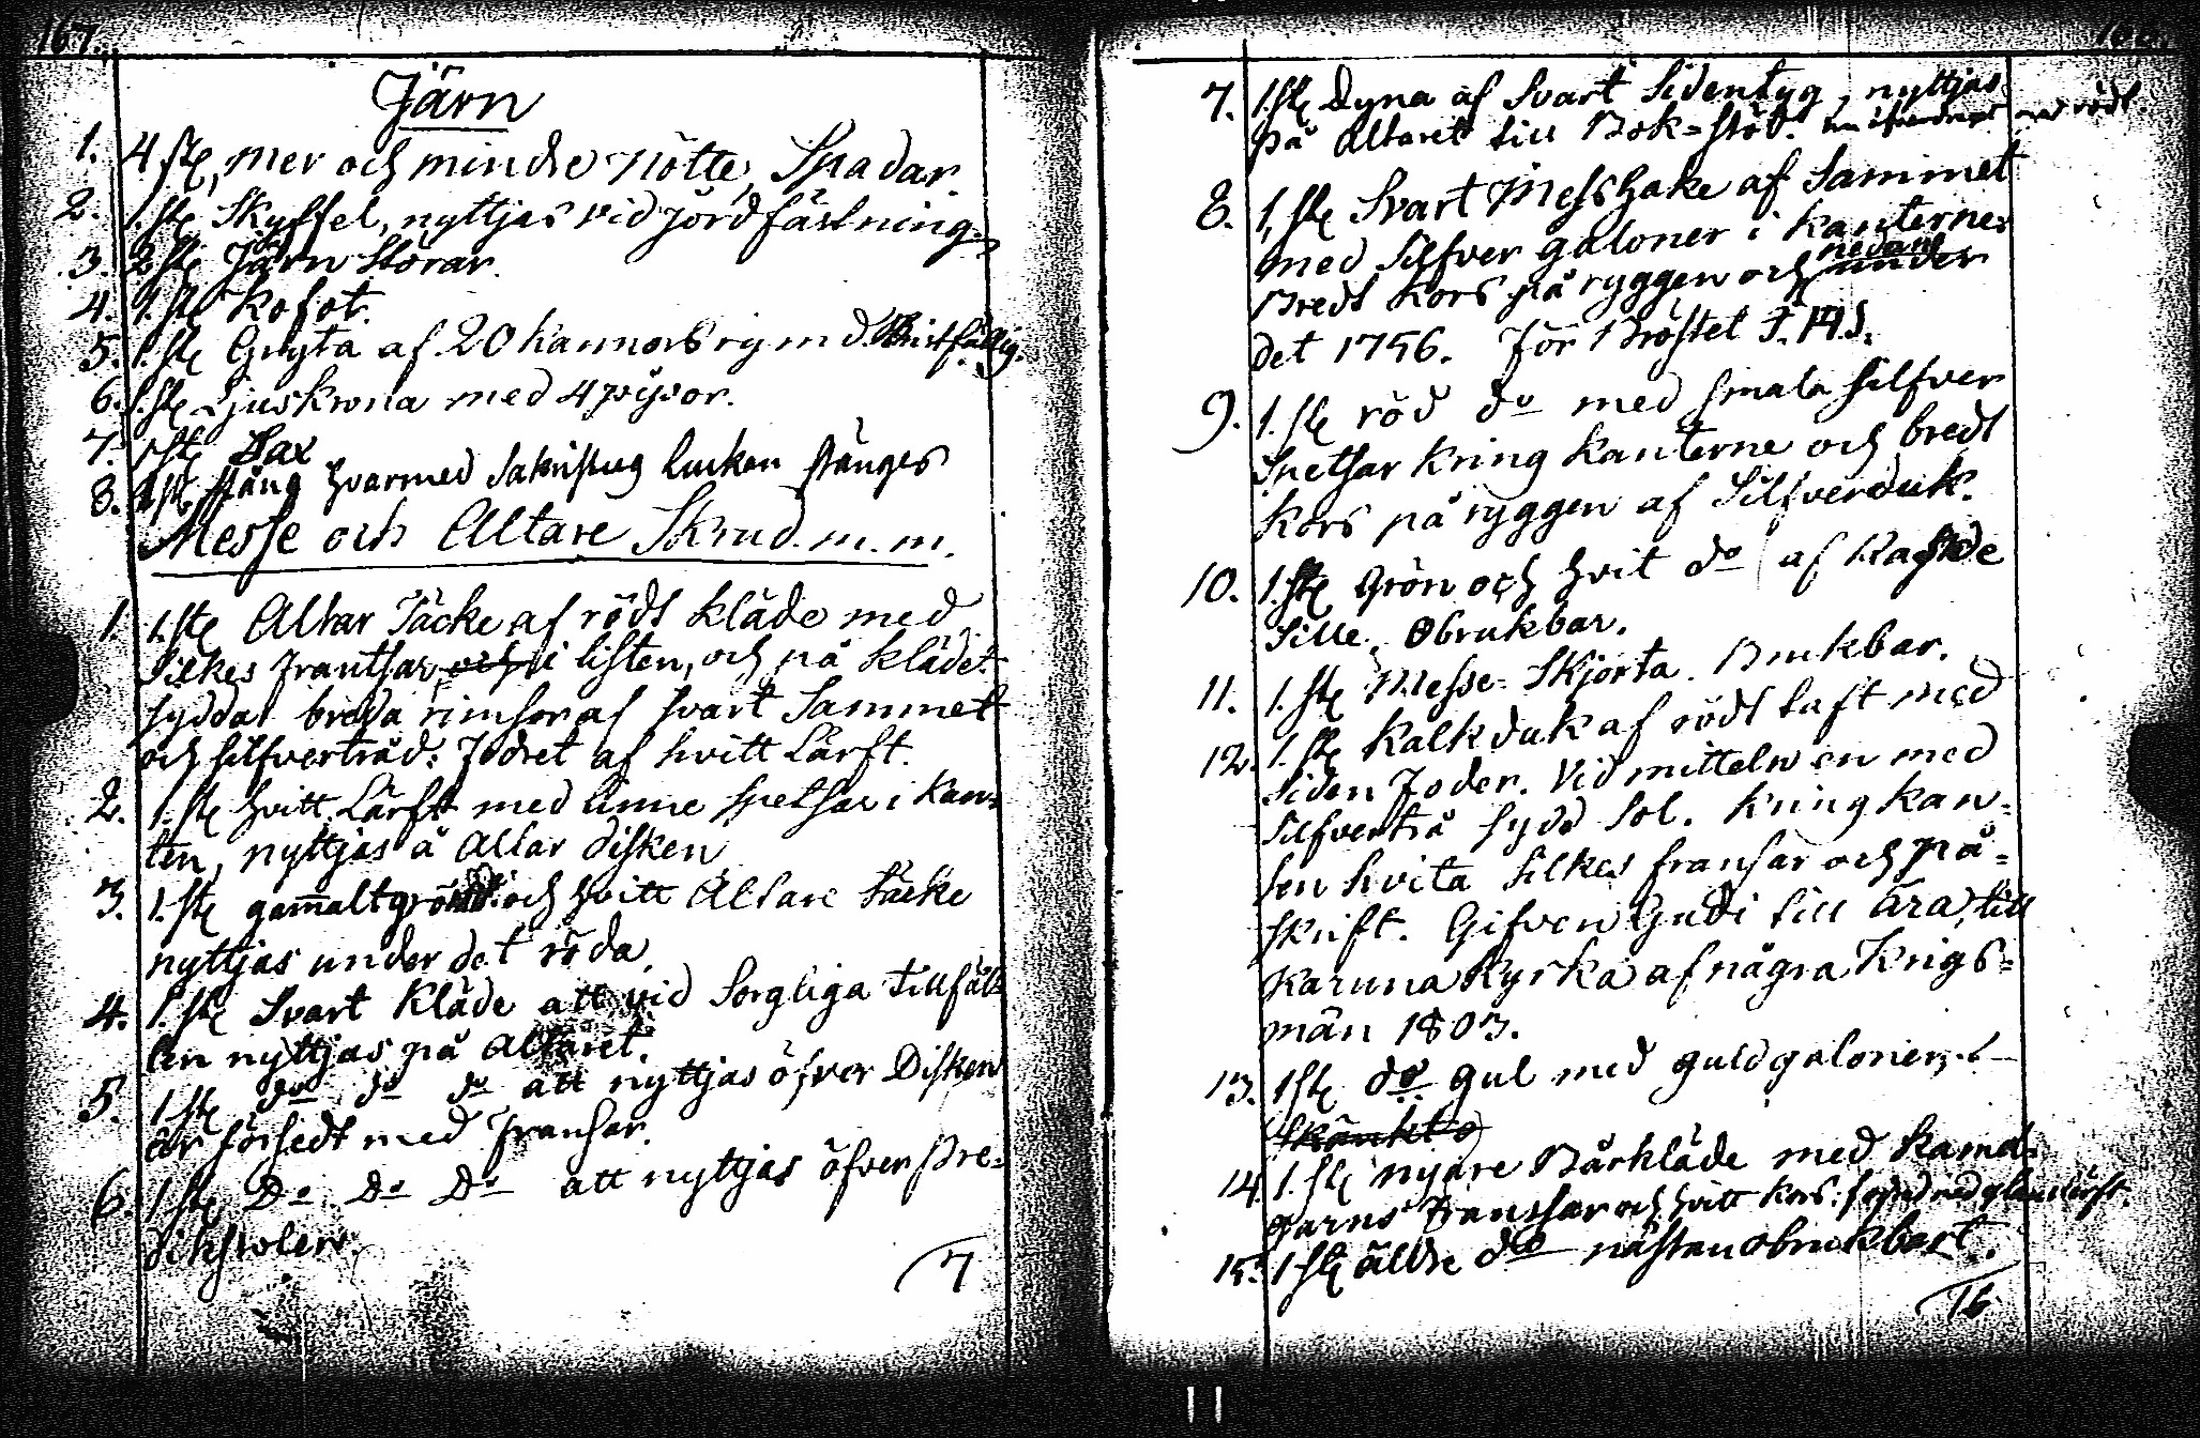 167.
Järn
1. 4 st, mer och mindre nötte, Spadar.
2. 1. st Skyffel, nyttjas vid jordfästning.
3. 2 st Järn Störar.
4. 1. st Kofot.
5. 1. st Gryta af 20 kannors rymd. Bristfällig.
6. 1. st Ljuskrona med 4 pipor.
7. 1 st Sax
8. 1 st Stång hvarmed Sakristug luckan stänges
Messe och Altare Skrud. m. m.
1. 1. st Altar Täcke af rödt kläde med
Silkes frantsar och i listen, och på klädet
sydda breda rimsor af svart Sammet
och silfvertråd: Fodret af hvitt Lärft.
2. 1. st hvitt Lärft med linne spetsar i kan-
ten, nyttjas å Altar disken
3. 1. st gam̄alt grönt och hvitt Altare täcke
nyttjas under det röda.
4. 1. st Svart Kläde att vid Sorgliga tillfäl-
len nyttjas på Altaret.
5. 1 st do do do att nyttjas öfver Disken
är försedt med fransar.
6. 1 st Do Do Do att nyttjas öfver Pre-
dikstolen.
7
7. 1. st Dyna af Svart Sidentyg, nyttjas
på Altaret till Bok-stöd. med rödt.
8. 1. st Svart Messhake af Sammet
med Silfver galoner i kanterne,
nedan
Bredt Kors på ryggen och under
det 1756. För Bröstet J.H.S.
9. 1. st röd do med smala silfver
Spetsar kring kanterne och bredt
Kors på ryggen af Silfverduk.
10. 1. st Grön och hvit do af
Sille. Obrukbar.
11. 1. st Messe-Skjorta. Brukbar.
12. 1. st Kalkduk af rödt taft med
Siden Foder. Vid mitteln en med
Silfvertrå sydd Sol. Kring kan-
ten hvita Silkes fransar och på-
skrift. Gifven Gudi till Ära, till
Karuna Kyrka af några Krigs-
män 1803.
13. 1 st do gul med guldgaloner,
Skänkt
14. 1. st nyare Bårkläde med Kamel-
garns Franssar och hvitt Kors.
15. 1 st äldre do nästan obrukbart.
16